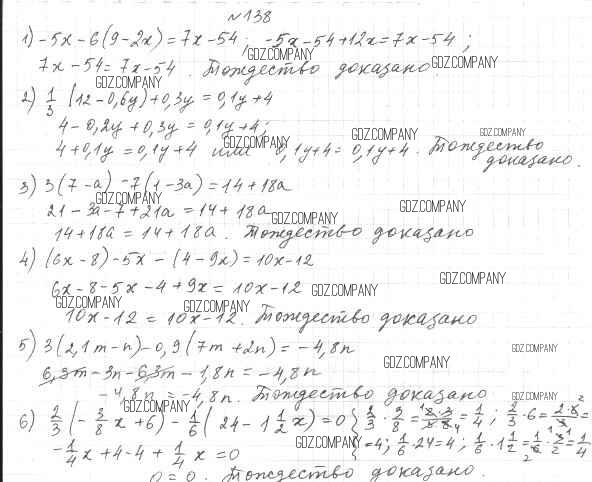 №138
1) -5x-6(9-2x)=7x-54; -5x-54+12x=7x-54;
GDZ.COMPANY
7x-54=7x-54. Тождество доказано.
GDZ.COMPANY
GDZ.COMPANY
2) 1/3 (12-0,6y)+0,3y=0,1y+4
4-0,2y+0,3y=0,1y+4;
GDZ.COMPANY
GDZ.COMPANY
GDZ.COMPANY
4+0,1y=0,1y+4 или 0,1y+4=0,1y+4. Тождество
доказано.
3) 3(7-a)-7(1-3a)=14+18a
GDZ.COMPANY
21-3a-7+21a=14+18a
GDZ.COMPANY
GDZ.COMPANY
14+18a=14+18a. Тождество доказано
4) (6x-8)-5x-(4-9x)=10x-12
GDZ.COMPANY
6x-8-5x-4+9x=10x-12
GDZ.COMPANY
GDZ.COMPANY
GDZ.COMPANY
10x-12=10x-12. Тождество доказано
5) 3(2,1m-n)-0,9(7m+2n)=-4,8n
GDZ.COMPANY
GDZ.COMPANY
6,3m-3n-6,3m-1,8n=-4,8n
-4,8n=-4,8n. Тождество доказано
GDZ.COMPANY
GDZ.COMPANY
6) 2/3 (-3/8 x+6)-1/6 (24-1 1/2 x)=0 { 2/3 · 3/8 = 2·3/3·8 = 1/4; 2/3 · 6 = 2·6/3 =
GDZ.COMPANY
-1/4 x+4-4+1/4 x=0 =4; 1/6 · 24=4; 1/6 · 1 1/2 = 1/6 · 3/2 = 1/4
0=0. Тождество доказано.